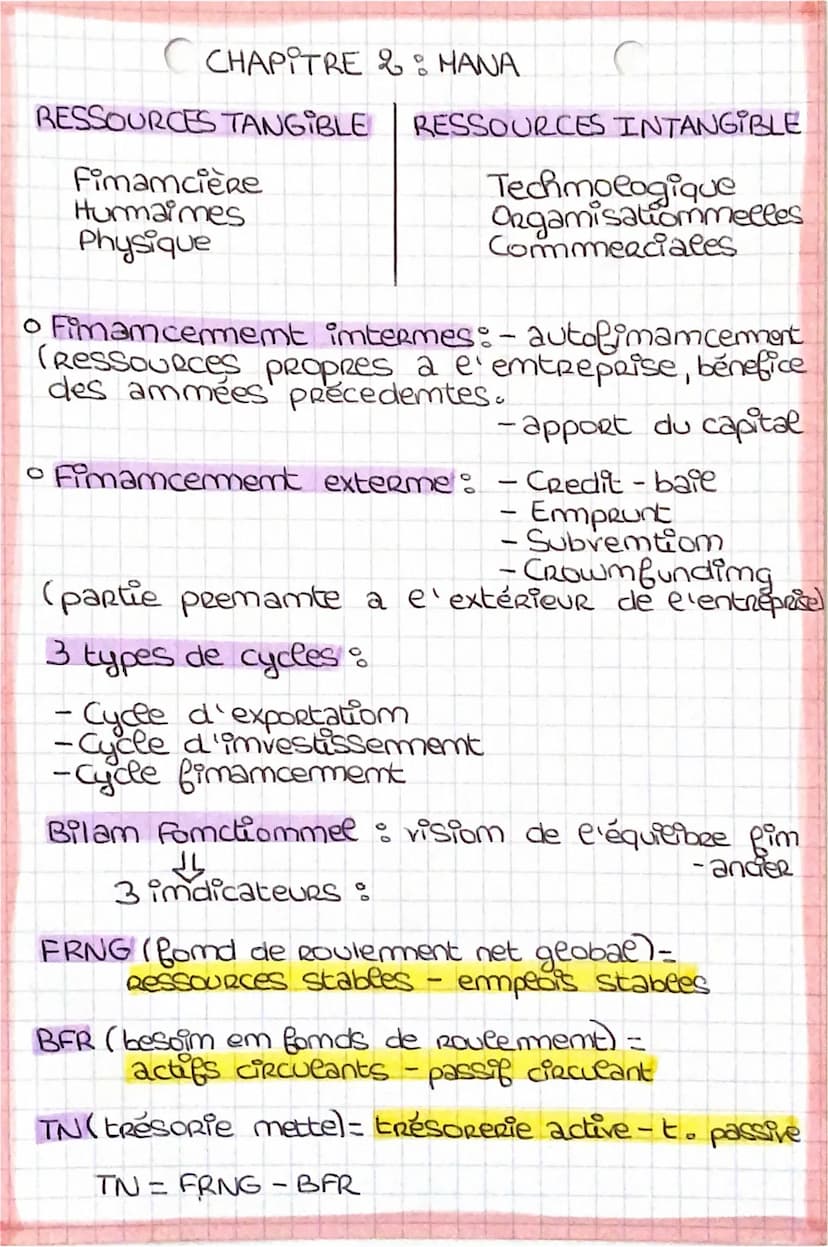 CHAPITRE 2 : MANA
RESSOURCES TANGIBLE
RESSOURCES INTANGIBLE
Financière
Humaines
Physique
Technologique
Organisationnelles
Commerciales
o Financement internes : - autofinancement
(Ressources propres a l'entreprise, bénefice
des années précedentes.
- apport du capital
o Financement externe : - Credit - bail
- Emprunt
- Subvention
- Crownfunding
(partie prenante a l'extérieur de l'entreprise)
3 types de cycles :
- Cycle d'exportation
- Cycle d'investissement
- Cycle financement
Bilan fonctionnel : vision de l'équilibre fin
-ancier
⇓
3 indicateurs :
FRNG (fond de roulement net global) =
ressources stables - emplois stables
BFR (besoin en fonds de roulement) =
actifs circulants - passif circulant
TN (trésorie nette) = trésorerie active - t. passive
TN = FRNG - BFR